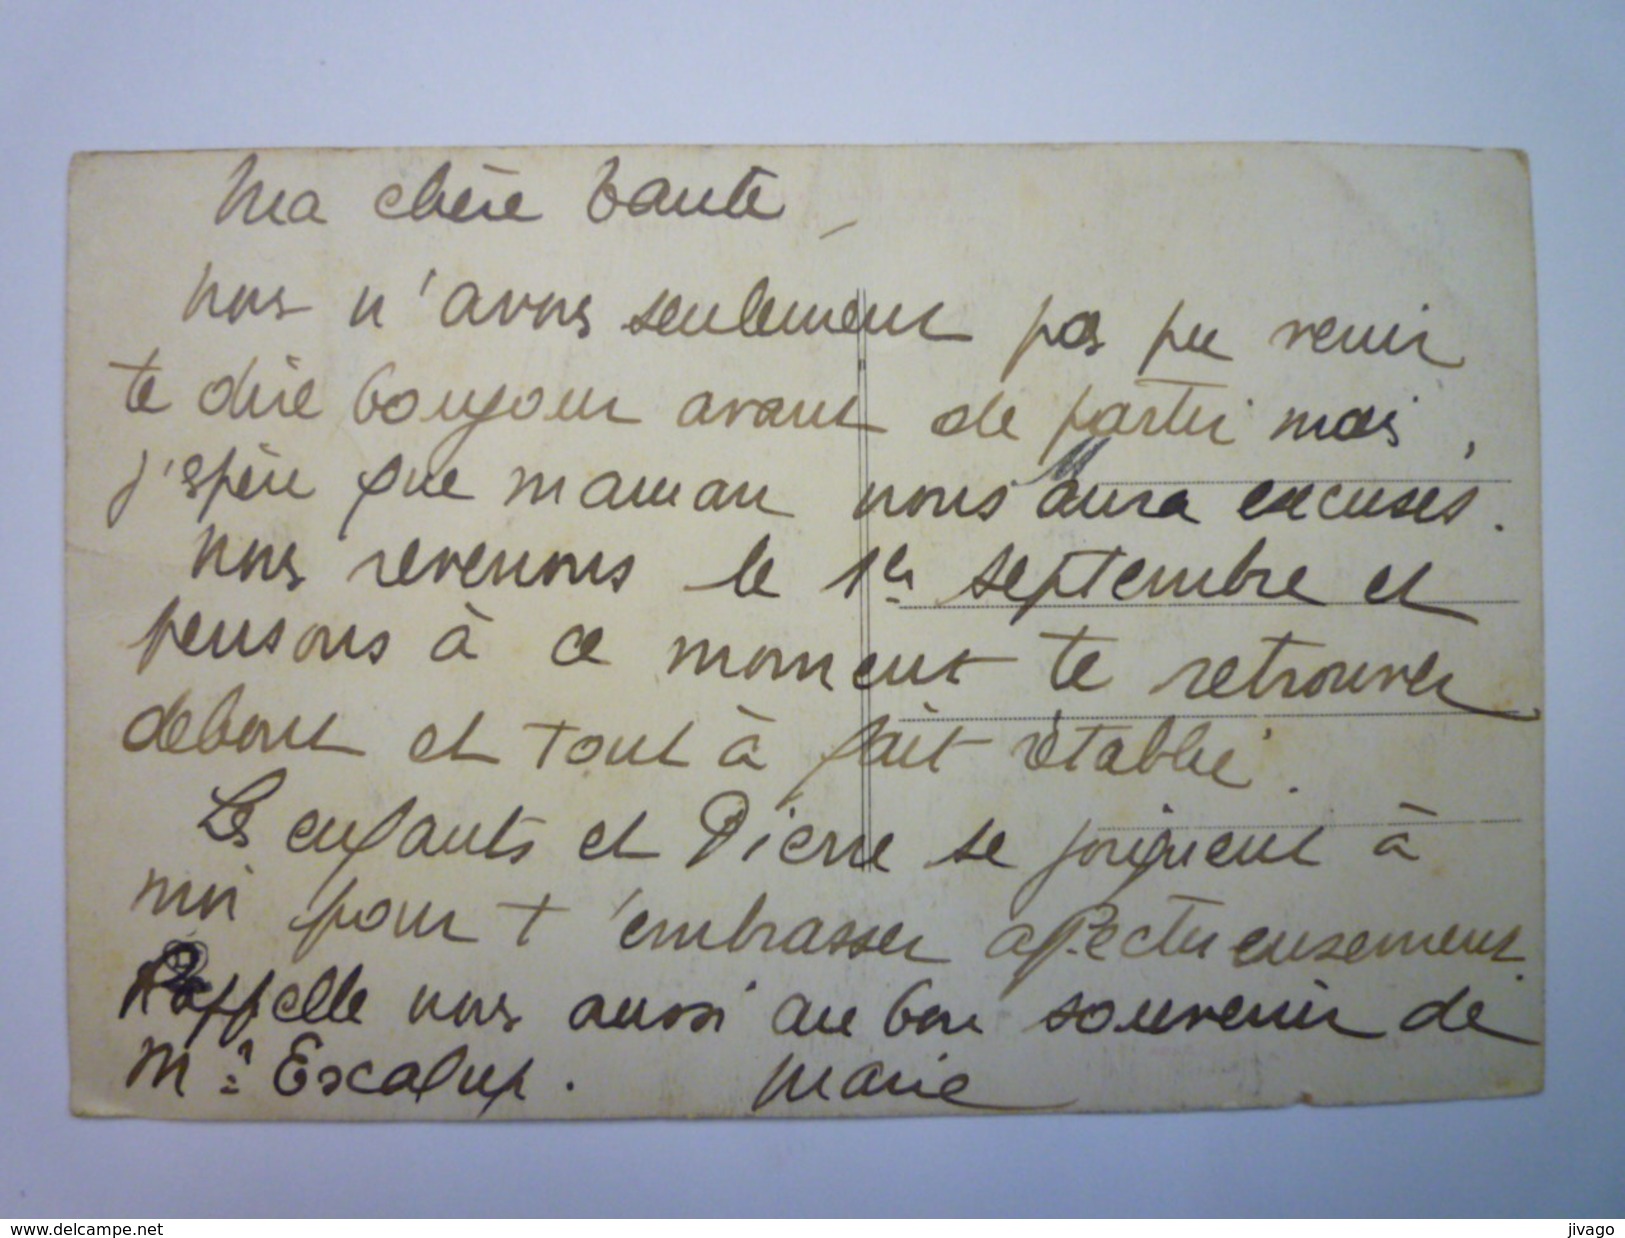 Ma chère tante,
nous n'avons seulement pas pu venir
te dire bonjour avant de partir mais,
j'espère que maman nous aura excusés.
Nous revenons le 1er septembre et
pensons à ce moment te retrouver
debout et tout à fait rétablie.
Les enfants et Pierre se joignent à
moi pour t'embrasser affectueusement.
Rappelle nous aussi au bon souvenir de
Mr Escalup. Marie
www.delcampe.net
jivago